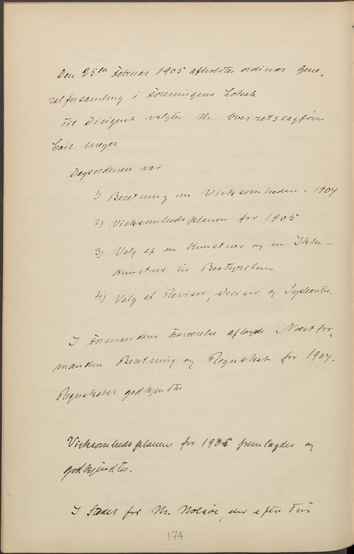 Den 25de Februar 1905 afholdtes ordinær Gene-
ralforsamling i Foreningens Lokale
Til Dirigent valgtes Hr. Overretssagfører
Carl Meyer
Dagsordenen var
1) Beretning om Virksomheden i 1904
2) Virksomhedsplanen for 1905
3) Valg af en Kunstner og en Ikke-
Kunstner til Bestyrelsen
4) Valg af Revisor,
I Formandens Forfald aflagde Næstfor-
manden Beretning og Regnskab for 1904.
Regnskabet godkjendtes
Virksomhedsplanen for 1905 fremlagdes og
godkjendtes.
I Stedet for Hr. der efter Tur
174